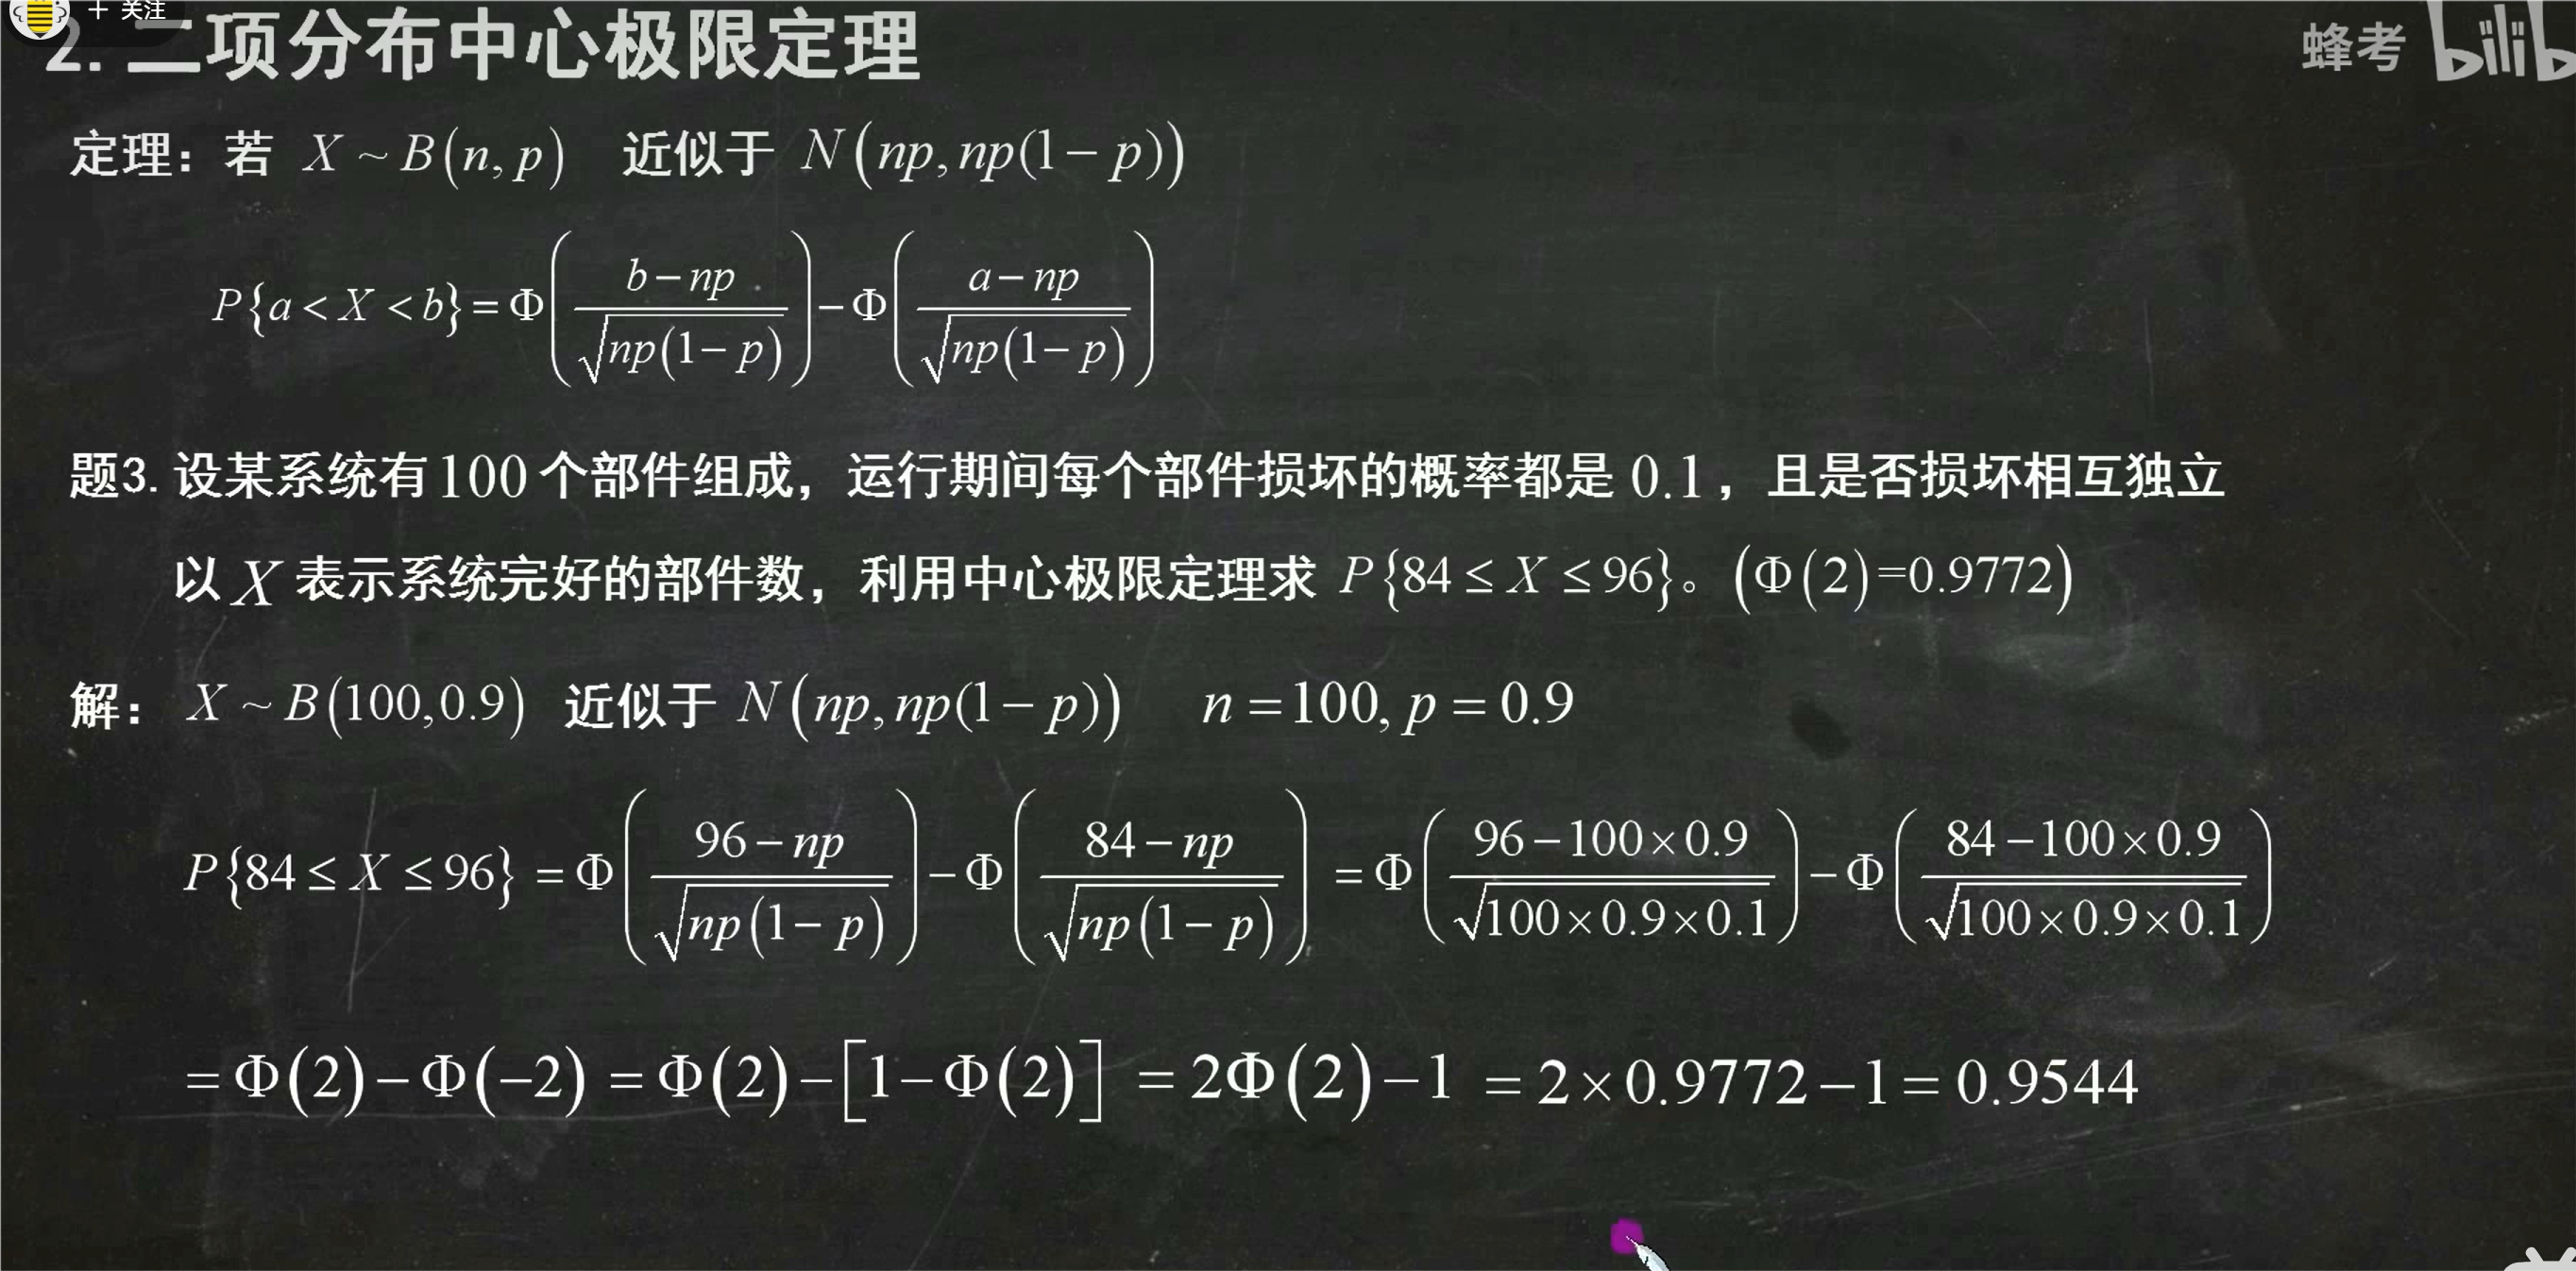 + 关注
2. 二项分布中心极限定理
蜂考 bilib
定理：若 X ~ B(n, p) 近似于 N(np, np(1− p))
P{a < X < b} = Φ((b − np)/√(np(1− p))) − Φ((a − np)/√(np(1− p)))
题3. 设某系统有100个部件组成，运行期间每个部件损坏的概率都是 0.1，且是否损坏相互独立
以 X 表示系统完好的部件数，利用中心极限定理求 P{84 ≤ X ≤ 96}。(Φ(2)=0.9772)
解： X ~ B(100,0.9) 近似于 N(np, np(1− p)) n = 100, p = 0.9
P{84 ≤ X ≤ 96} = Φ((96 − np)/√(np(1− p))) − Φ((84 − np)/√(np(1− p))) = Φ((96 −100×0.9)/√(100×0.9×0.1)) − Φ((84 −100×0.9)/√(100×0.9×0.1))
= Φ(2) − Φ(−2) = Φ(2) − [1− Φ(2)] = 2Φ(2) −1 = 2×0.9772 −1 = 0.9544